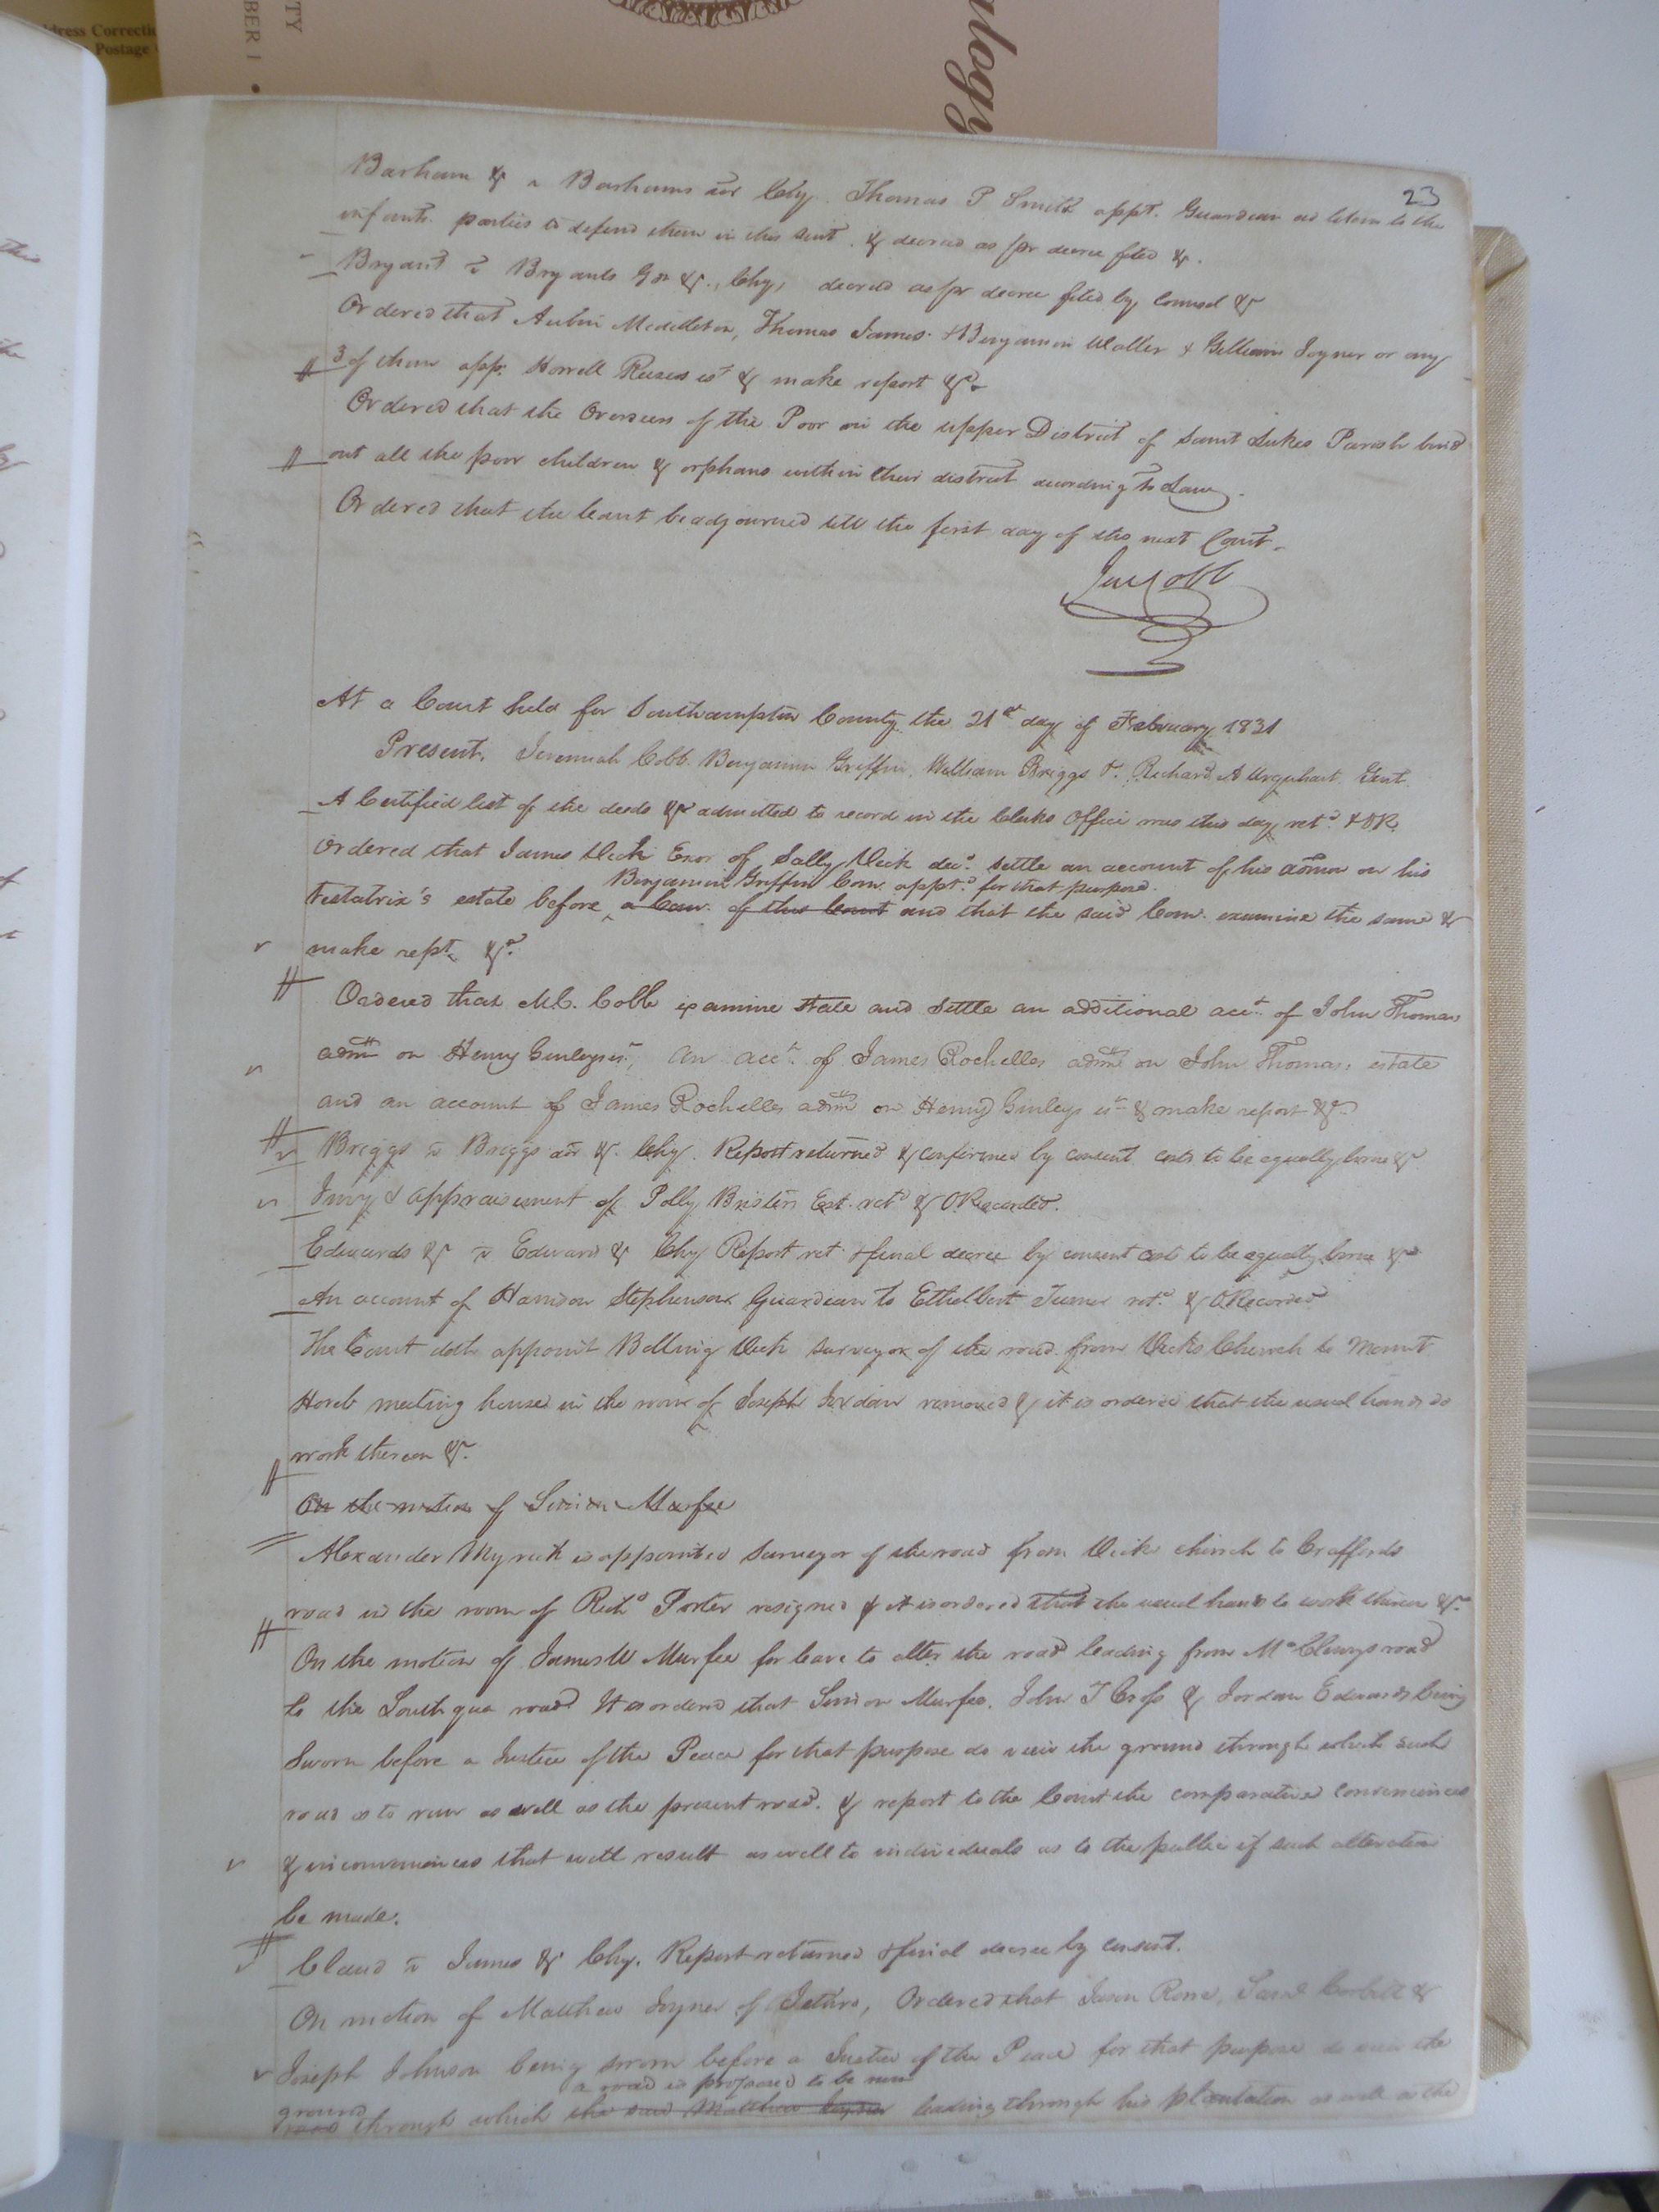 dress Correcti
Postage
BER 1 •
TY
ology
23
Barham & v Barhams &c Chy. Thomas P Smith appt. Guardian ad litem to the
infants parties to defend them in this suit. & decreed as pr decree filed &.
Bryant v Bryants Gdn &., Chy, decreed as pr decree filed by Counsel &
Ordered that Aubin Middleton, Thomas James & Benjamin Waller & William Joyner or any
3 of them app: Howell est & make report &c
Ordered that the Overseers of the Poor in the upper District of Saint Lukes Parish bind
out all the poor children & orphans within their district according to Law.
Ordered that the Court be adjourned till the first day of the next Court.
Jer Cobb
At a Court held for Southampton County the 21st day of February 1831
Present. Jeremiah Cobb. Benjamin Griffin, William Briggs &. Richard A Urquhart. Gent.
A Certified list of the deeds &c admitted to record in the Clerks Office was this day retd. & OR.
Ordered that James Vick Exor of Sally Vick decd. settle an account of his admon on his
Benjamin Griffin Com. apptd. for that purpose.
testatrix's estate before a Com. of this Court and that the said Com. examine the same &
make rept. &c.
Ordered that M.C. Cobb examine state and settle an additional acct. of John Thomas
admn on Henry Gurleys est, An acct. of James Rochelles admn on John Thomas, estate
and an account of James Rochelles admn on Henry Gurleys est & make report &c
Briggs v Briggs adr &. Chy. Report returned & confirmed by consent costs to be equally borne &
Invy & appraisement of Polly Bristers Est. retd & ORecorded.
Edwards & v Edwards & Chy Report ret & final decree by consent costs to be equally borne &c
An account of Harrison Stephenson Guardian to Ethelbert Turner retd. & ORecorded
The Court doth appoint Bolling Vick surveyor of the road from Vicks Church to Mount
Horeb meeting house in the room of Joseph Jordan removed & it is ordered that the usual hands do
work thereon &.
On the motion of Simon Murfee
Alexander Myrick is appointed surveyor of the road from Vicks church to Craffords
road in the room of Richd Porter resigned & it is ordered that the usual hands to work thereon &c
On the motion of James W Murfee for leave to alter the road leading from McClenys road
to the South quay road It is ordered that Simon Murfee, John T Cross & Jordan Edwards being
Sworn before a Justice of the Peace for that purpose do view the ground through which such
road is to run as well as the present road. & report to the Court the comparative conveniences
& inconveniences that will result as well to individuals as to the public if such alteration
be made.
Claud v James & Chy. Report returned & final decree by consent.
On motion of Matthew Joyner of Jethro, Ordered that Jason Rose, Saml Corbitt &
Joseph Johnson being sworn before a Justice of the Peace for that purpose do view the
ground a road is proposed to be run
road through which the said Matthew Joyner leading through his plantation as well as the